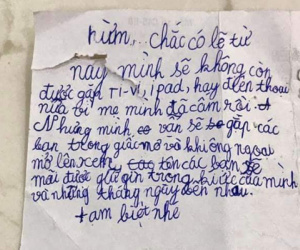 hừm... chắc có lẽ từ
nay mình sẽ không còn
được gặp TI-VI, ipad, hay điện thoai
nữa bỉ mẹ mình đã cấm rồi.
Nhưng mình vẫn sẽ gặp các
bạn trong giấc mơ và khi ngoại
mở lên xem, tôn các bạn sẽ
mãi được giữ gìn trong kí ức của mình
và những tháng ngày bên nhau.
tạm biệt nhé